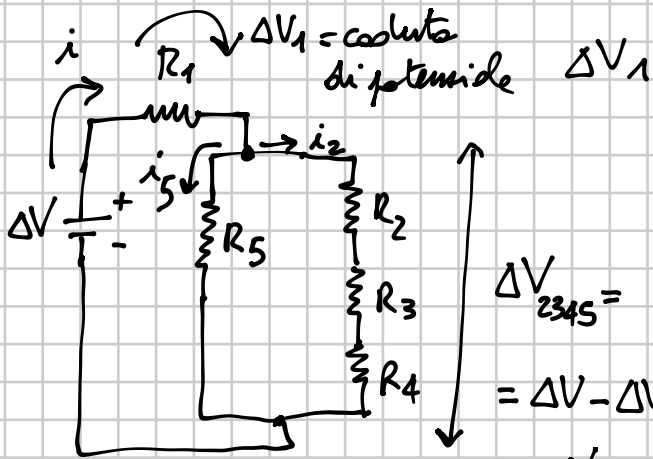 i
R₁
ΔV₁ = caduta
di potenziale
ΔV₁
i₂
i₅
ΔV
+
-
R₅
R₂
R₃
R₄
ΔV₂₃₄₅ =
= ΔV - ΔV